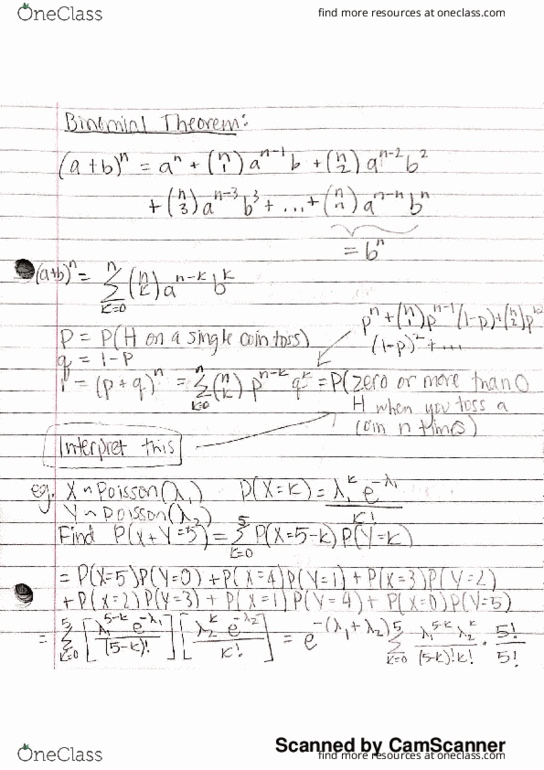 OneClass
find more resources at oneclass.com
Binomial Theorem:
(a+b)^n = a^n + (n 1) a^{n-1} b + (n 2) a^{n-2} b^2
+ (n 3) a^{n-3} b^3 + ... + (n n) a^{n-n} b^n
= b^n
(a+b)^n = Σ_{k=0}^{n} (n k) a^{n-k} b^k
p^n + (n 1) p^{n-1} (1-p) + (n 2) p
(1-p)^2 + ...
P = P(H on a single coin toss)
q = 1-p
1 = (p+q)^n = Σ_{k=0}^{n} (n k) p^{n-k} q^k = P(zero or more than 0
H when you toss a
coin n times)
Interpret this
eg. X ~ Poisson(λ₁) P(X=k) = λ₁^k e^{-λ₁} / k!
Y ~ Poisson(λ₂)
Find P(X+Y=5) = Σ_{k=0}^{5} P(X=5-k) P(Y=k)
= P(X=5)P(Y=0) + P(X=4)P(Y=1) + P(X=3)P(Y=2)
+ P(X=2)P(Y=3) + P(X=1)P(Y=4) + P(X=0)P(Y=5)
= Σ_{k=0}^{5} [λ₁^{5-k} e^{-λ₁} / (5-k)!] [λ₂^k e^{-λ₂} / k!] = e^{-(λ₁+λ₂)} Σ_{k=0}^{5} λ₁^{5-k} λ₂^k / (5-k)!k! · 5!/5!
Scanned by CamScanner
OneClass
find more resources at oneclass.com